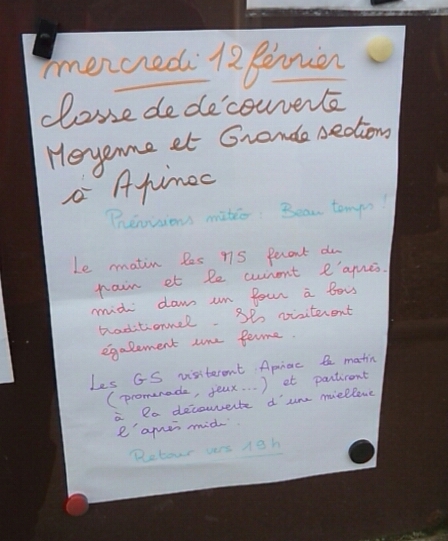 mercredi 12 février
classe de découverte
Moyenne et Grande sections
à Apinac
Prévisions météo : Beau temps !
Le matin les MS feront du
pain et le cuiront l'après-
midi dans un four à bois
traditionnel - Ils visiteront
également une ferme.
Les GS visiteront Apinac le matin
(promenade, jeux...) et partiront
à la découverte d'une miellerie
l'après midi.
Retour vers 19h